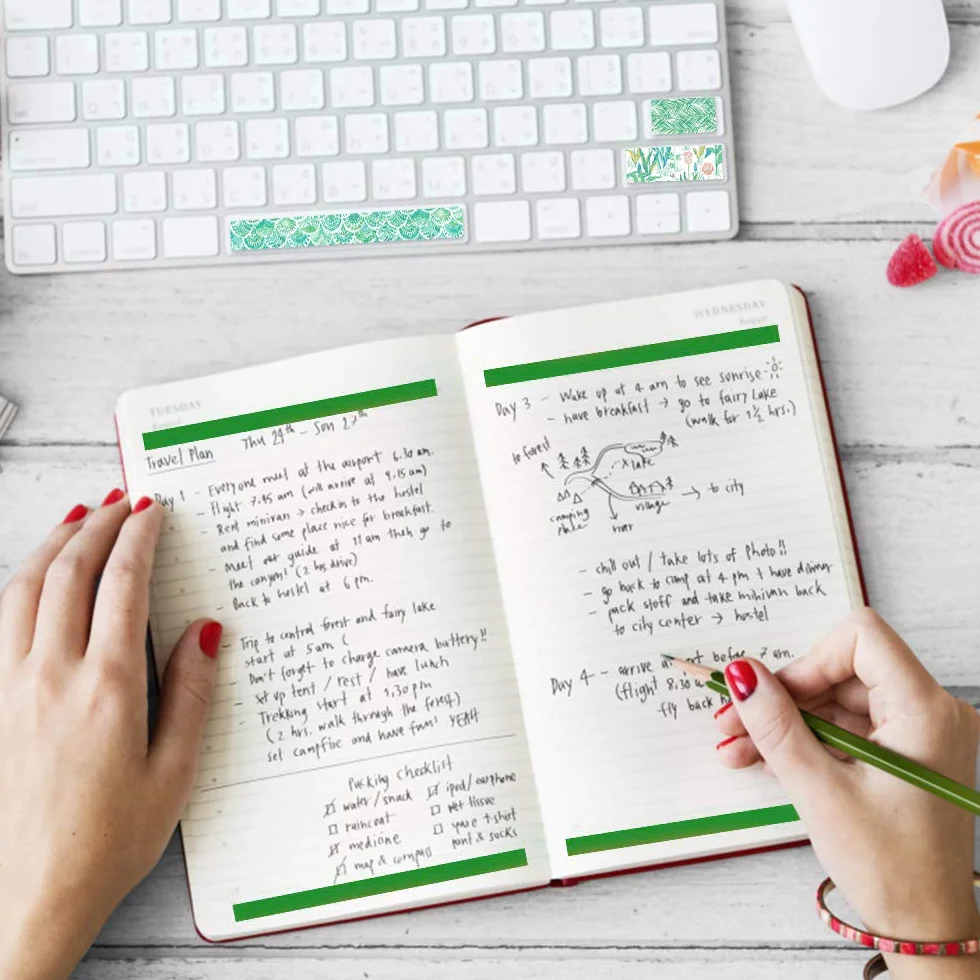 TUESDAY
Thu 24th - Sun 27th
Travel Plan
Day 1 - Everyone meet at the airport 6.30 am.
- Flight 7.45 am (will arrive at 9.15 am)
- Rent minivan → checkin to the hostel
and find some place nice for breakfast.
- Meet our guide at 11 am then go to
the canyon! (2 hrs drive)
- Back to hostel at 6 pm.
- Trip to central forest and fairy lake
start at 5 am (
- Don't forget to charge camera battery!!
- set up tent / rest / have lunch
- Trekking start at 1,30 pm
(2 hrs. walk through the forest)
set campfire and have fun! YEAH
Packing Checklist
water/snack
raincoat
medicine
map & compass
ipod/earphone
wet tissue
spare t-shirt
pant & socks
WEDNESDAY
August
Day 3 - Wake up at 4 am to see sunrise
- have breakfast → go to fairy Lake
(walk for 1 1/2 hrs.)
to forest
x lake
→ to city
village
camping
place
river
- chill out / take lots of photo!!
- go back to camp at 4 pm + have dinner
- pack stuff and take minivan back
to city center → hostel
Day 4 - arrive before 7 am.
(flight 8,30
fly back